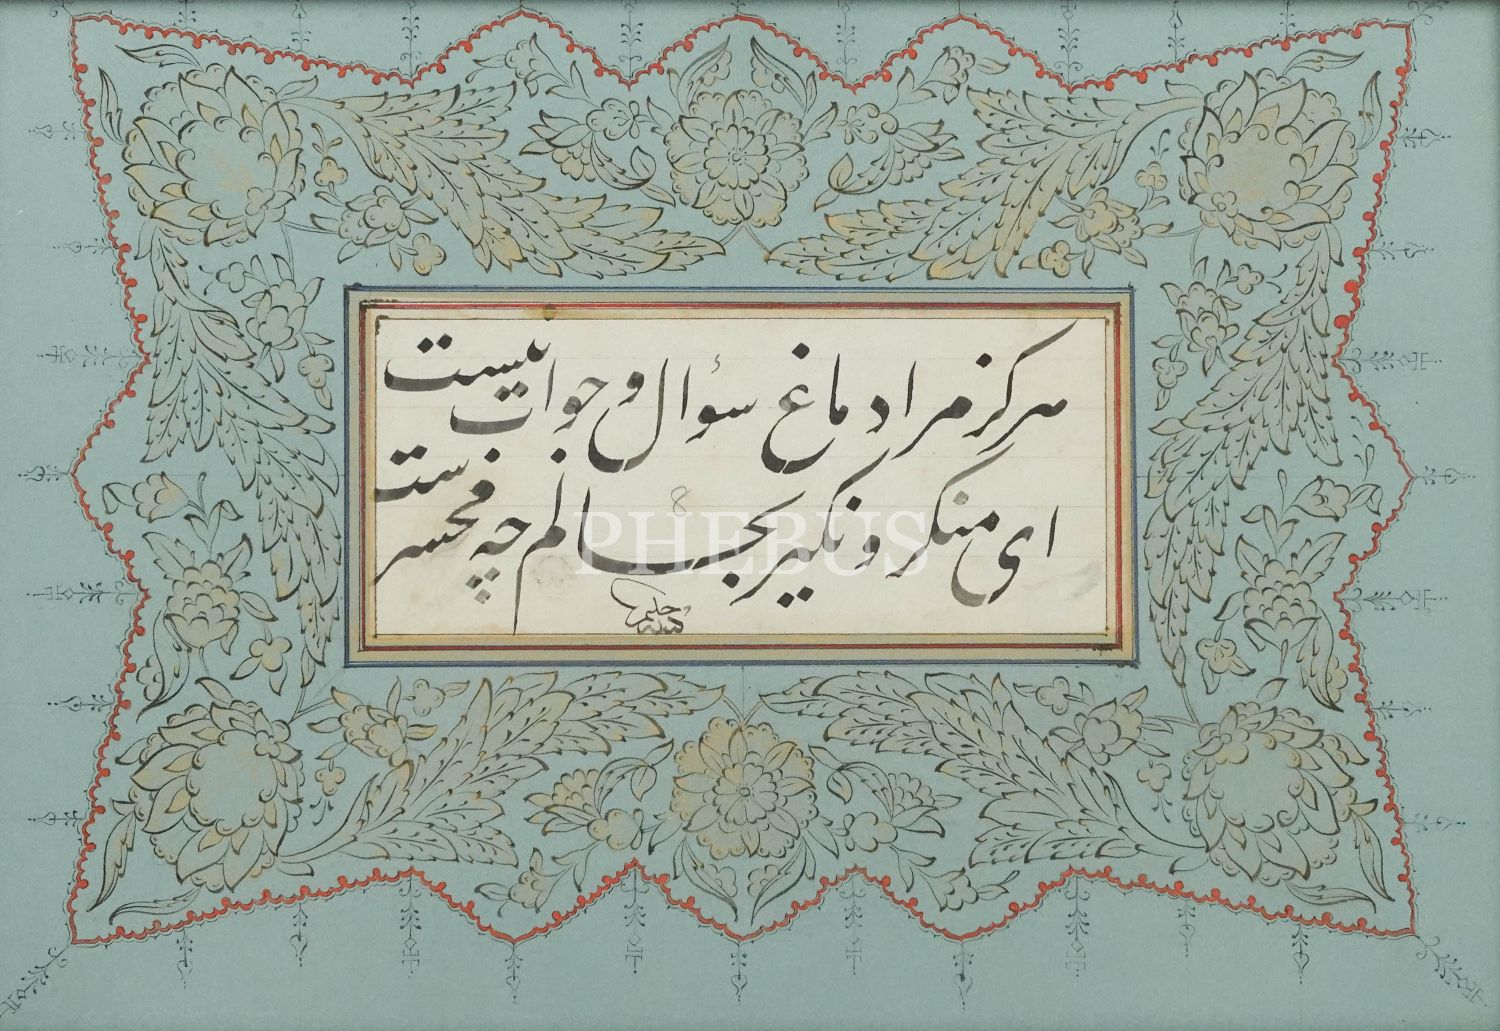 هرگز مرا دماغ سؤال و جواب نیست
ای منکر و نکیر بجانم چه محشرست
PHEBUS
حلیم